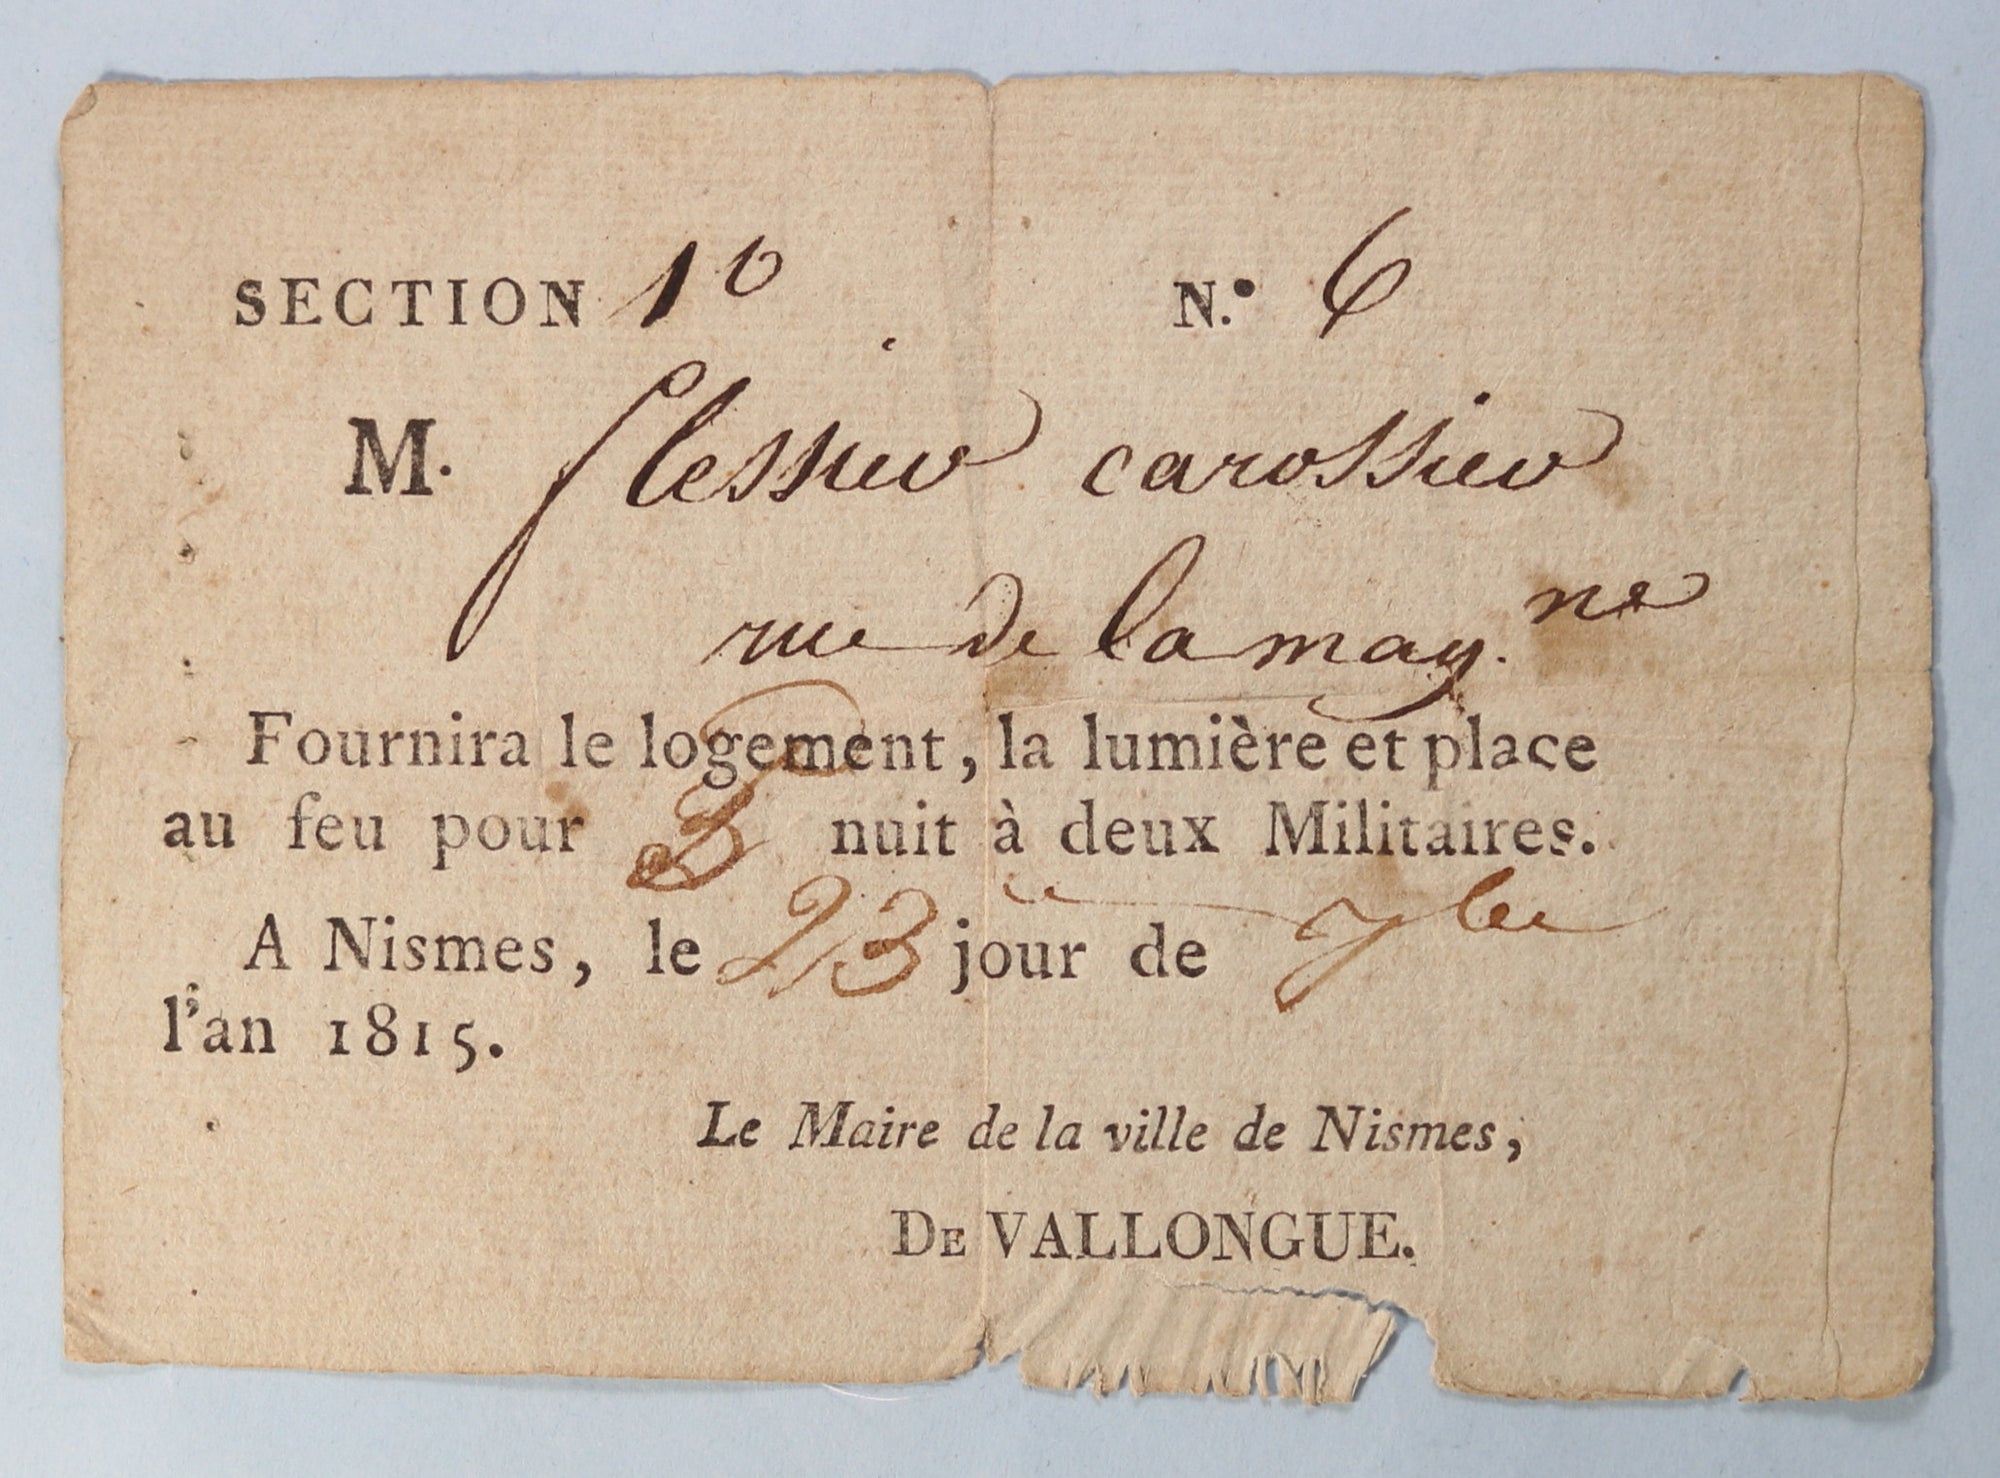 SECTION 1º N.º 6
M. flessier carossier
rue de la may.ne
Fournira le logement, la lumière et place
au feu pour nuit à deux Militaires.
A Nismes, le 23 jour de 7bre
l'an 1815.
Le Maire de la ville de Nismes,
DE VALLONGUE.